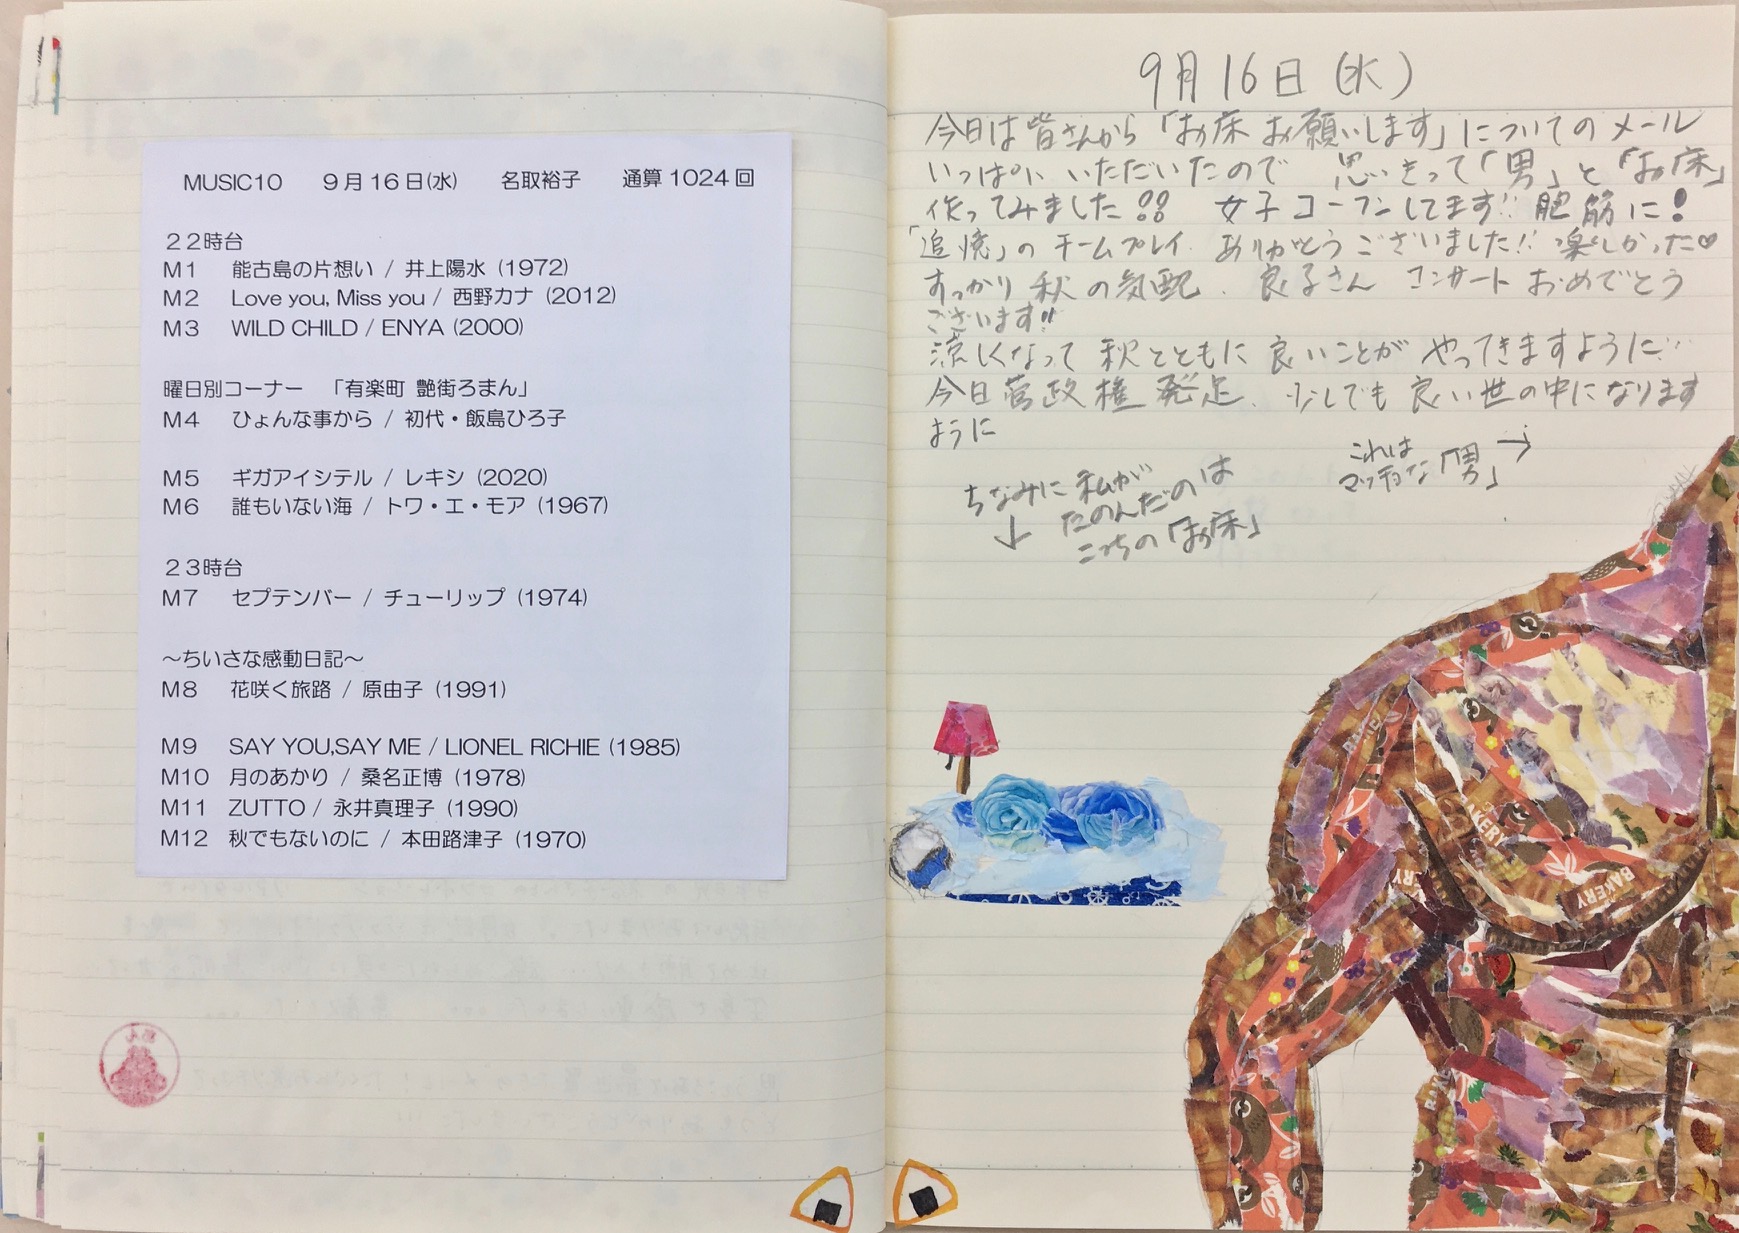 MUSIC10 9月16日(水) 名取裕子 通算1024回
22時台
M1 能古島の片想い / 井上陽水 (1972)
M2 Love you, Miss you / 西野カナ (2012)
M3 WILD CHILD / ENYA (2000)
曜日別コーナー 「有楽町 艶街ろまん」
M4 ひょんな事から / 初代・飯島ひろ子
M5 ギガアイシテル / レキシ (2020)
M6 誰もいない海 / トワ・エ・モア (1967)
23時台
M7 セプテンバー / チューリップ (1974)
～ちいさな感動日記～
M8 花咲く旅路 / 原由子 (1991)
M9 SAY YOU,SAY ME / LIONEL RICHIE (1985)
M10 月のあかり / 桑名正博 (1978)
M11 ZUTTO / 永井真理子 (1990)
M12 秋でもないのに / 本田路津子 (1970)
9月16日(水)
今日は皆さんから「お床 お願いします」についてのメール
いっぱい いただいたので 思いきって「男」と「お床」
作ってみました!! 女子コーフンしてます!! 肥筋に!
「追憶」の チームプレイ. ありがとうございました!! 楽しかった♡
すっかり 秋の気配. 良子さん コンサート おめでとう
ございます!!
涼しくなって 秋とともに 良いことが やってきますように…
今日菅政権 発足. 少しでも 良い世の中になります
ように
これは
マッチョな「男」→
ちなみに 私が
↓ たのんだのは
こっちの「お床」
BAKERY
BAKERY
BAKERY